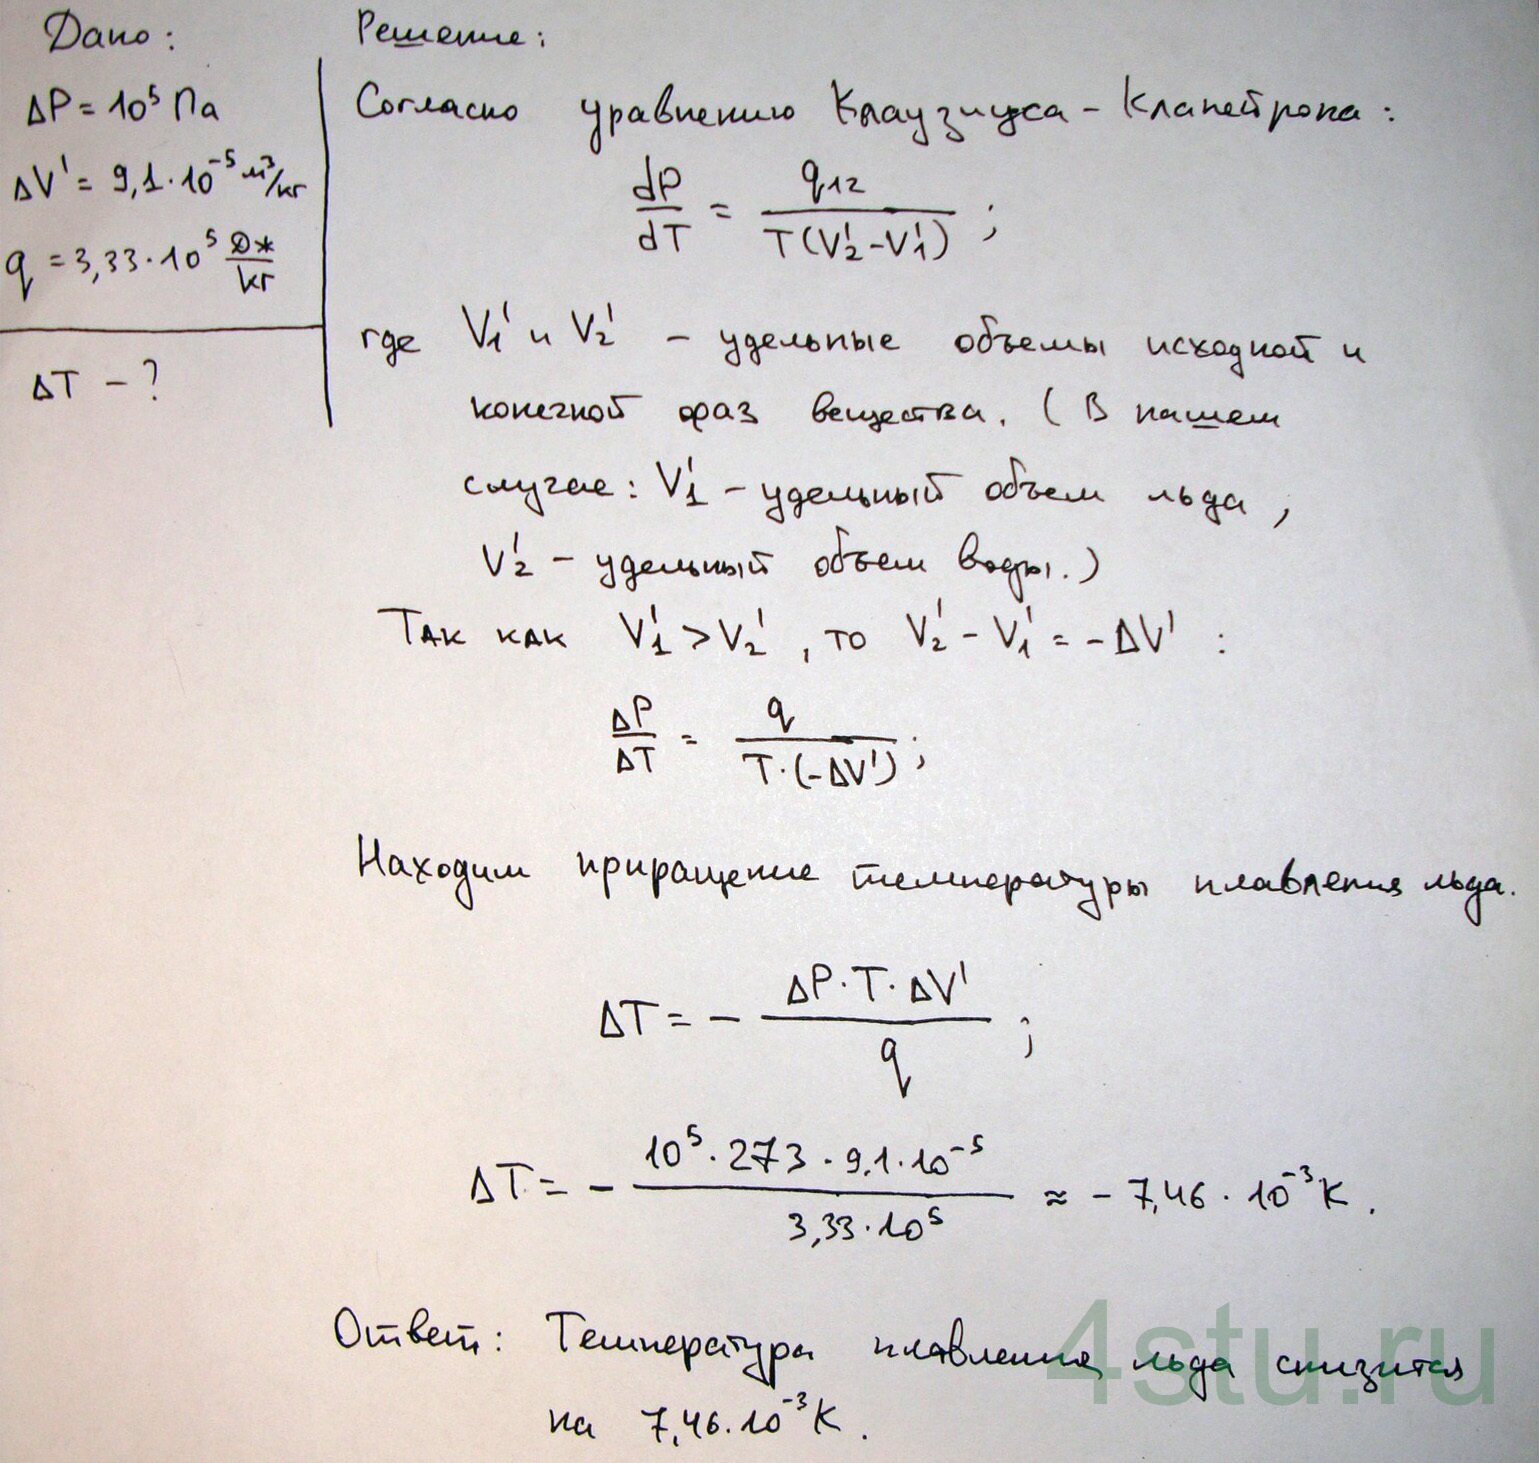 Дано:
ΔP = 10⁵ Па
ΔV' = 9,1·10⁻⁵ м³/кг
q = 3,33·10⁵ Дж/кг
ΔT – ?
Решение:
Согласно уравнению Клаузиуса – Клапейрона:
dP/dT = q₁₂/(T(V₂' – V₁')) ;
где V₁' и V₂' – удельные объемы исходной и
конечной фаз вещества. (В нашем
случае: V₁' – удельный объем льда,
V₂' – удельный объем воды.)
Так как V₁' > V₂', то V₂' – V₁' = –ΔV' :
ΔP/ΔT = q/(T·(–ΔV')) ;
Находим приращение температуры плавления льда.
ΔT = – ΔP·T·ΔV'/q ;
ΔT = – 10⁵·273·9,1·10⁻⁵/3,33·10⁵ ≈ – 7,46·10⁻³ К.
Ответ: Температура плавления льда снизится
на 7,46·10⁻³ К.
4stu.ru